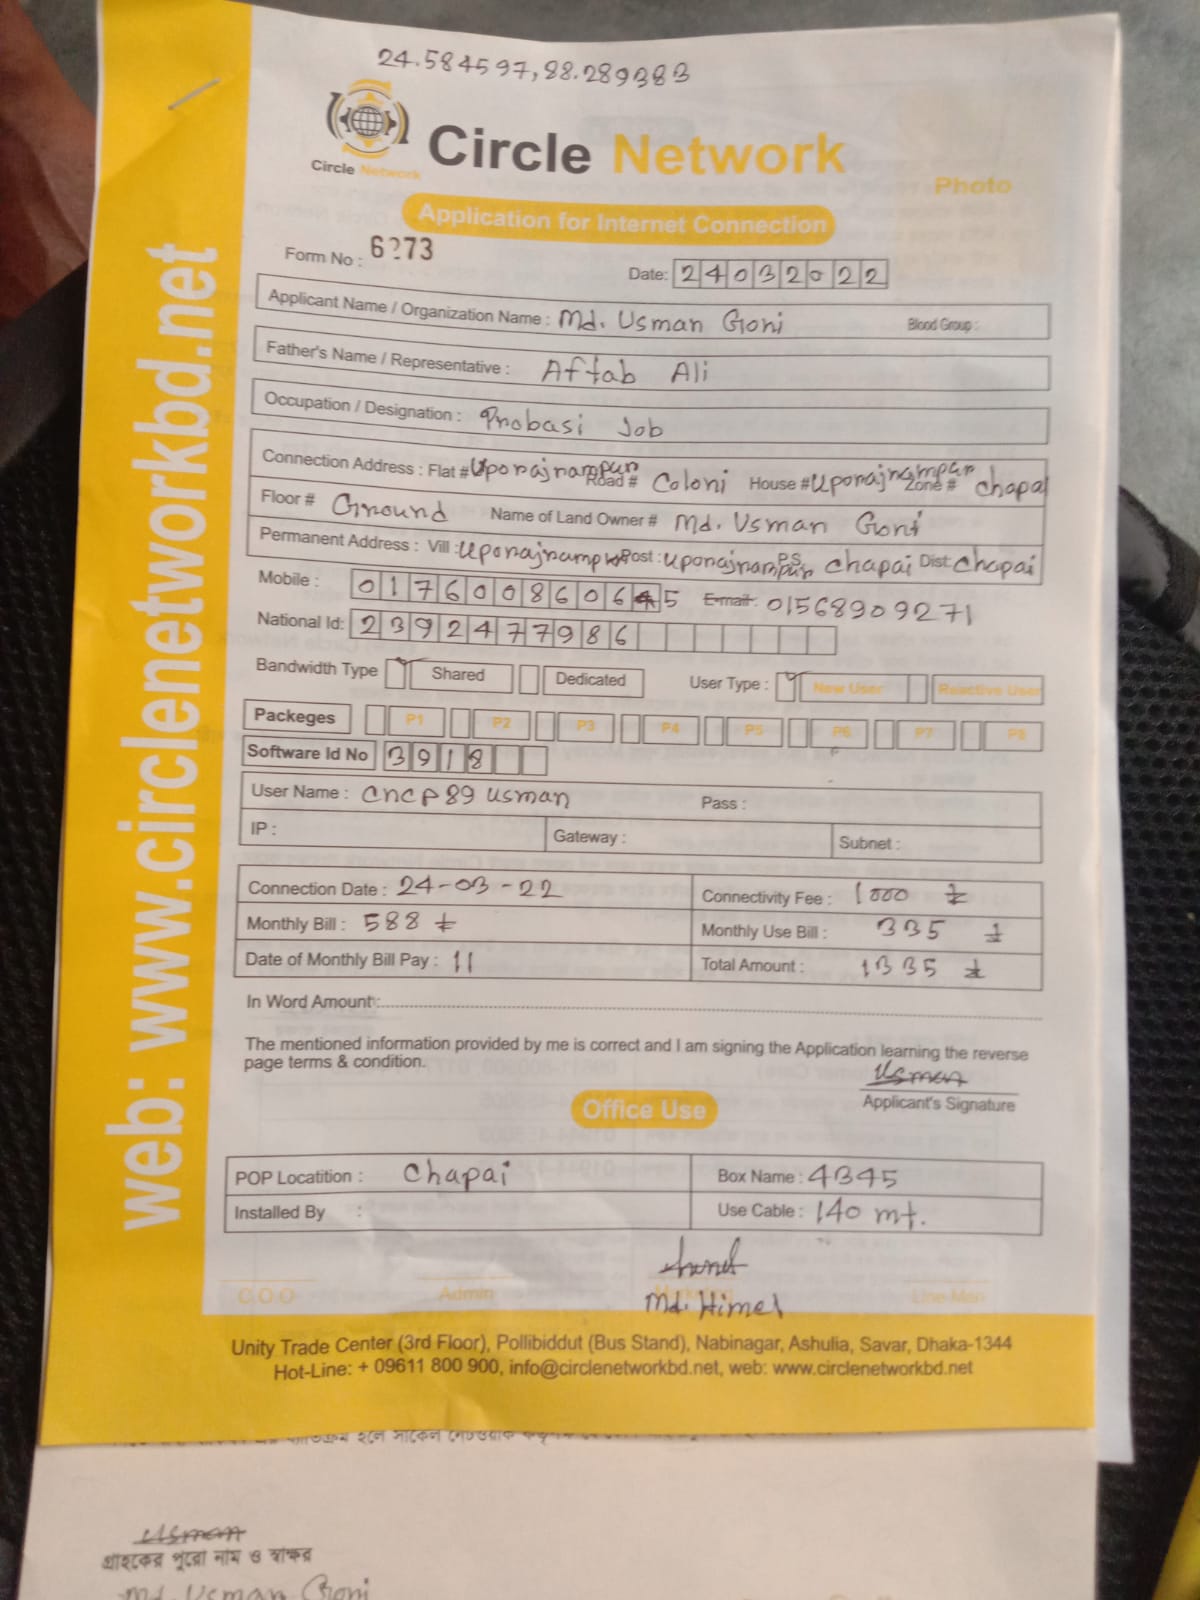 24.584597, 88.289383
Circle Network
Circle Network
Photo
Application for Internet Connection
Form No : 6273
Date: 24032022
Applicant Name / Organization Name : Md. Usman Goni Blood Group :
Father's Name / Representative : Aftab Ali
Occupation / Designation : Probasi Job
Connection Address : Flat # Uporajrampur Road # Coloni House # Uporajrampur Zone # Chapai
Floor # Ground Name of Land Owner # Md. Usman Goni
Permanent Address : Vill : Uporajrampur Post : Uporajrampur P.S. Chapai Dist: Chapai
Mobile : 01760086065 E-mail: 01568909271
National Id: 2392477986
Bandwidth Type Shared Dedicated User Type : New User Reactive User
Packeges P1 P2 P3 P4 P5 P6 P7 P8
Software Id No 3918
User Name : cncp89 usman Pass :
IP : Gateway : Subnet :
Connection Date : 24-03-22 Connectivity Fee : 1000 ৳
Monthly Bill : 588 ৳ Monthly Use Bill : 335 ৳
Date of Monthly Bill Pay : 11 Total Amount : 1335 ৳
In Word Amount :
The mentioned information provided by me is correct and I am signing the Application learning the reverse
page terms & condition.
Usman
Applicant's Signature
Office Use
POP Locatition : Chapai Box Name : 4345
Installed By : Use Cable : 140 mt.
C.O.O Admin Line Man
Md. Himel
Unity Trade Center (3rd Floor), Pollibiddut (Bus Stand), Nabinagar, Ashulia, Savar, Dhaka-1344
Hot-Line: + 09611 800 900, info@circlenetworkbd.net, web: www.circlenetworkbd.net
web: www.circlenetworkbd.net
Usman
গ্রাহকের পুরো নাম ও স্বাক্ষর
Md. Usman Goni